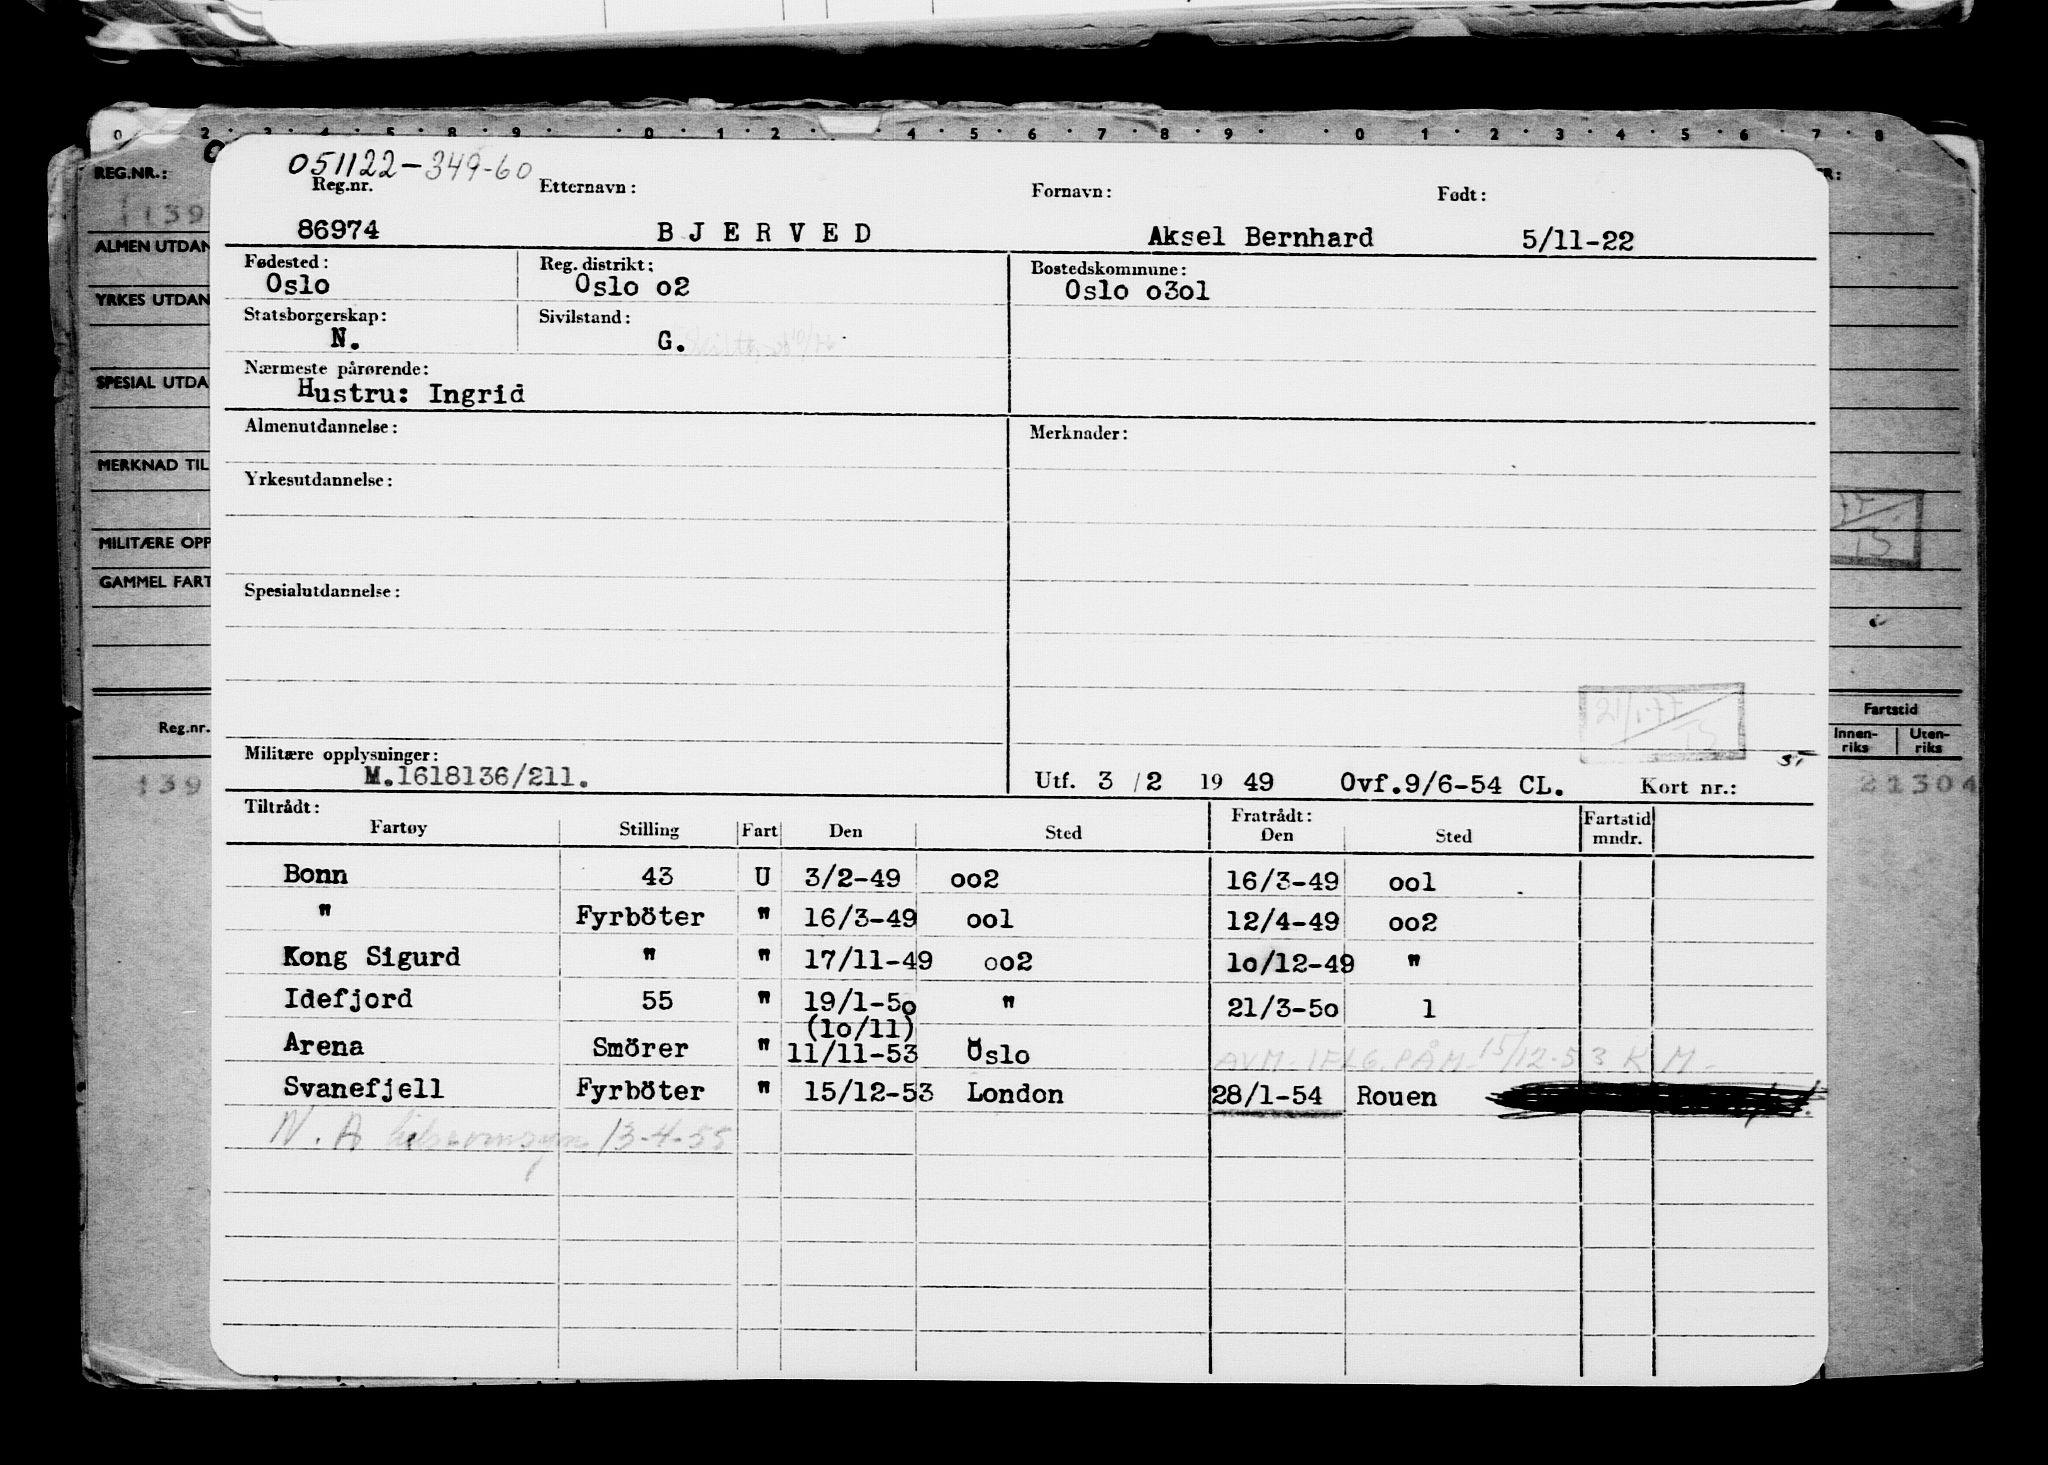 0 2 3 4 5 8 9 0 1 2 4 5 6 7 8 9 0 1 2 3 4 5 6 7 8
REG.NR.:
139
ALMEN UTDAN
YRKES UTDAN
SPESIAL UTDA
MERKNAD TIL
MILITÆRE OPP
GAMMEL FART
Reg.nr.
139
051122-349-60
Reg.nr. Etternavn: Fornavn: Født:
86974 BJERVED Aksel Bernhard 5/11-22
Fødested: Reg. distrikt: Bostedskommune:
Oslo Oslo o2 Oslo o3ol
Statsborgerskap: Sivilstand:
N. G.
Nærmeste pårørende:
Hustru: Ingrid
Almenutdannelse: Merknader:
Yrkesutdannelse:
Spesialutdannelse:
21/1-77
15
Militære opplysninger:
M.1618136/211. Utf. 3 / 2 19 49 Ovf.9/6-54 CL. Kort nr.:
Tiltrådt: Fratrådt:
Fartøy Stilling Fart Den Sted Den Sted Fartstid mndr.
Bonn 43 U 3/2-49 oo2 16/3-49 ool
" Fyrböter " 16/3-49 ool 12/4-49 oo2
Kong Sigurd " " 17/11-49 oo2 lo/12-49 "
Idefjord 55 " 19/1-5o " 21/3-5o 1
(lo/11)
Arena Smörer " 11/11-53 Oslo AVM. IFLG. PÅM. 15/12-53 K.M.
Svanefjell Fyrböter " 15/12-53 London 28/1-54 Rouen
N. A 13-4-55
Fartstid
Innen-riks Uten-riks
21304